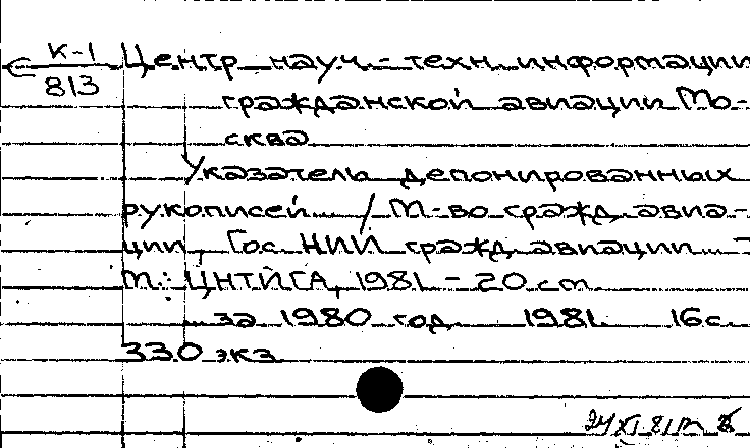 К-1
813
Центр науч.-техн. информации
гражданской авиации Мо-
сква
Указатель депонированных
рукописей... / М-во гражд. авиа-
ции, Гос. НИИ гражд. авиации. -
М.: ЦНТИГА, 1981. - 20 см.
за 1980 год. 1981. 16с.
330 экз
24 XI 81